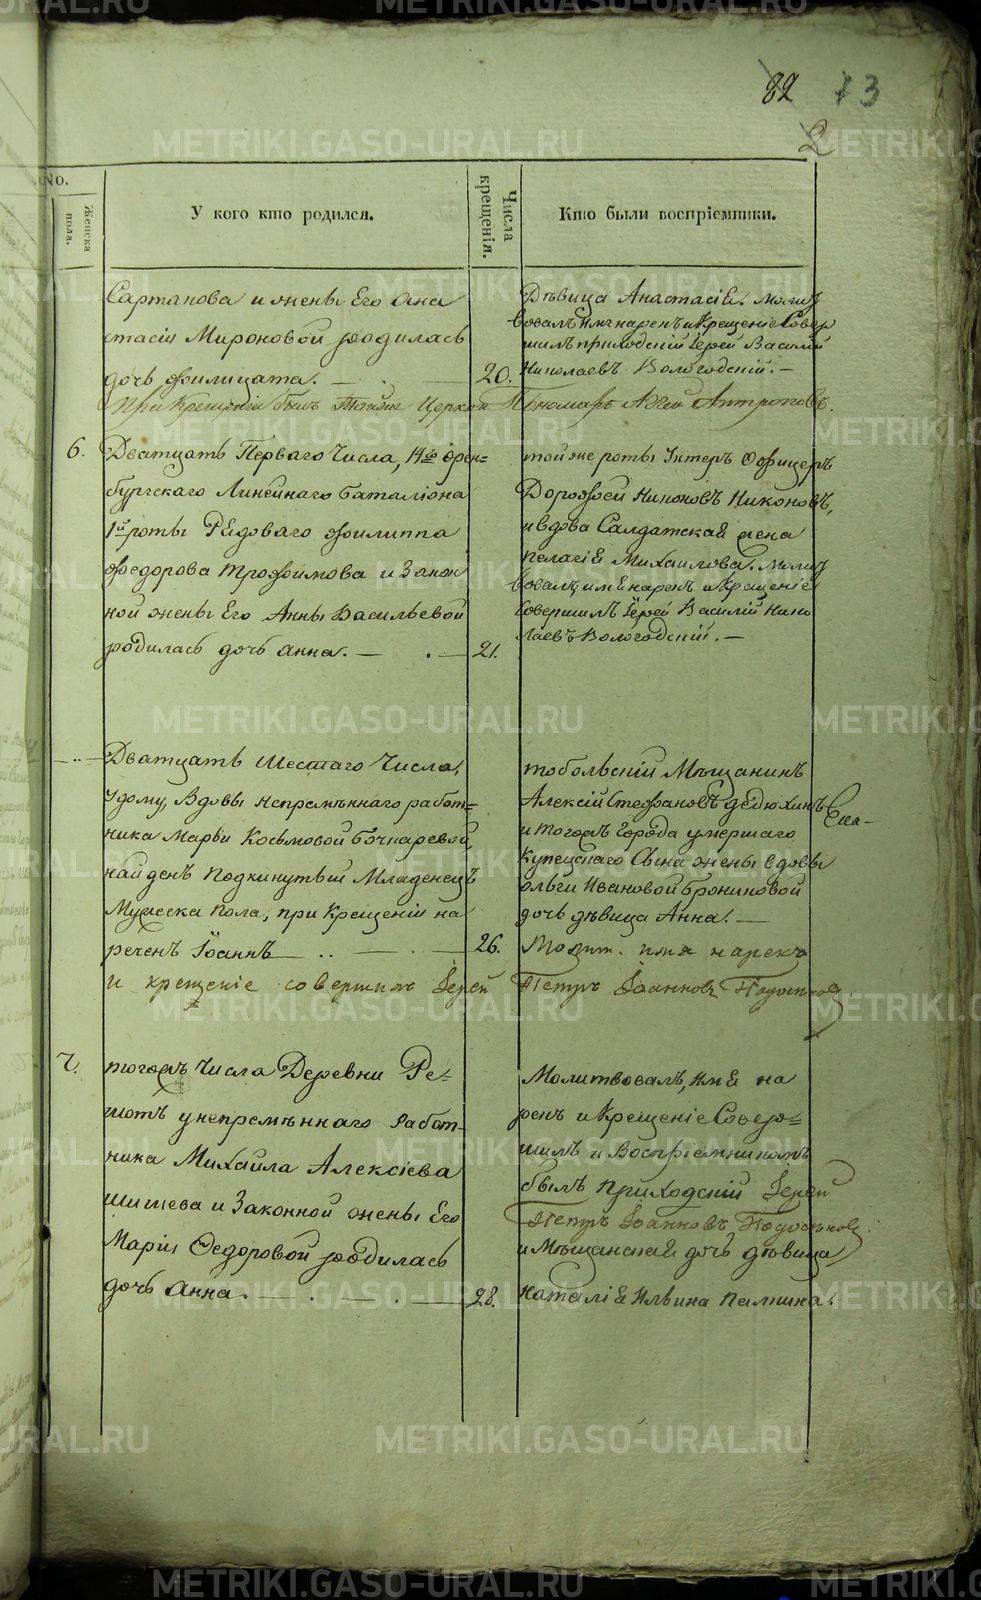 82 13
2
No.
Женска пола.
У кого кто родился.
Числа крещенія.
Кто были воспріемники.
Сартакова и жены Его Ана
стасіи Мироновой родилась
дочь Филицата. — 20.
При Крещеніи былъ Тойже Церкви Пономарь Антроповъ.
Дѣвица Анастасія. Молит
вовалъ Имя нарекъ и Крещеніе Совер
шилъ приходскій Іерей Василій
Николаевъ Вологодскій. —
6. Дватцать Перваго Числа, 14го Орен=
бургскаго Линейнаго баталіона
1й роты Рядоваго Филиппа
Федорова Трофимова и Закон
ной жены Его Анны Васильевой
родилась дочь Анна. — . — 21.
той же роты Унтеръ Офицеръ
Дорофей Никоновъ Никоновъ,
и вдова Салдатская жена
Пелагія Михаилова. Молит
вовалъ, имя нарекъ и Крещеніе
Совершилъ Іерей Василій Нико
лаевъ Вологодскій. —
Дватцать Шестаго Числа,
Удому, Вдовы Непремѣннаго работ=
ника Марьи Косьмовой Бочкаревой,
найденъ Подкинутый Младенецъ
Мужеска Пола, при Крещеніи на
реченъ Іоаннъ — 26.
и крещеніе совершилъ Іерей Петръ Іоанновъ
тобольскій Мѣщанинъ
Алексій Стефановъ Дедюхинъ
и тогожъ Города умершаго
Купецкаго Сына жены вдовы
Ольги Ивановой Брониновой
дочь дѣвица Анна. —
Молит. имя нарекъ
7. тогожъ Числа Деревни Ре=
шотъ у непремѣннаго Работ
ника Михаила Алексіева
Шишева и Законной жены Его
Маріи Федоровой родилась
дочь Анна. — 28.
Молитвовалъ, Имя на
рекъ и Крещеніе Совер=
шилъ и Воспріемникомъ
былъ Приходскій Іерей
Петръ Іоанновъ
и Мѣщанская дочь дѣвица
Наталія Ильина
METRIKI.GASO-URAL.RU